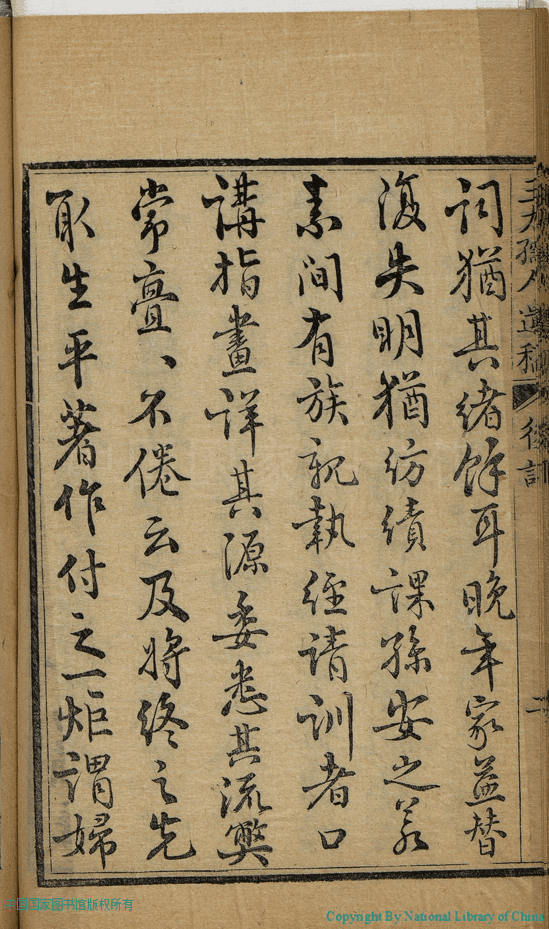 詞猶其緒餘耳晚年家益替
復失明猶紡績課孫安之若
素間有族親執經請訓者口
講指畫詳其源委悉其流弊
常亹、不倦云及將終之先
取生平著作付之一炬謂婦
人遺稿
二
中国国家图书馆版权所有
Copyright By National Library of China